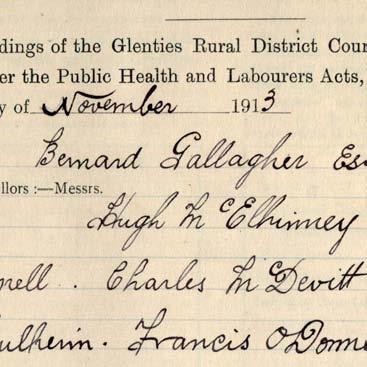 dings of the Glenties Rural District Cour
er the Public Health and Labourers Acts,
y of November 1913
Bernard Gallagher Es
llors :—Messrs.
Hugh McElhinney
nell . Charles McDevitt
ulherin . Francis O'Donne